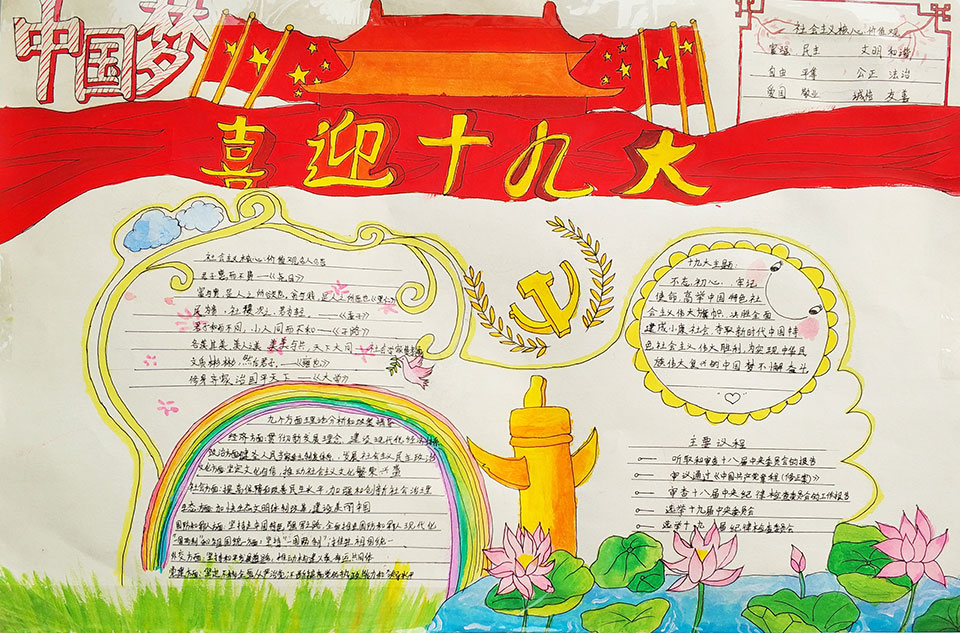 中国梦
社会主义核心价值观
富强 民主 文明 和谐
自由 平等 公正 法治
爱国 敬业 诚信 友善
喜迎十九大
社会主义核心价值观古人语
富与贵,是人之所欲也
民为贵,社稷次之,君为轻。——《孟子》
君子和而不同,小人同而不和——《子路》
各美其美,美人之美,美美与共,天下大同
文质彬彬,然后君子。——《雍也》
修身齐家治国平天下——《大学》
十九大主题:
不忘初心,牢记
使命,高举中国特色社
会主义伟大旗帜,决胜全面
建成小康社会,夺取新时代中国特
色社会主义伟大胜利,为实现中华民
族伟大复兴的中国梦不懈奋斗
九个方面理论分析和政策指导
经济方面:贯彻新发展理念,建设现代化经济体系
政治方面:健全人民当家作主制度体系,发展社会主义民主政治
文化方面:坚定文化自信,推动社会主义文化繁荣兴盛
社会方面:提高保障和改善民生水平,加强和创新社会治理
生态方面:加快生态文明体制改革,建设美丽中国
国防和军队方面:坚持走中国特色强军之路,全面推进国防和军队现代化
“一国两制”和祖国统一方面:坚持“一国两制”,推进祖国统一
外交方面:坚持和平发展道路,推动构建人类命运共同体
主要议程
听取和审查十八届中央委员会的报告
审议通过《中国共产党章程(修正案)》
审查十八届中央纪律检查委员会的工作报告
选举十九届中央委员会
选举十九届纪律检查委员会